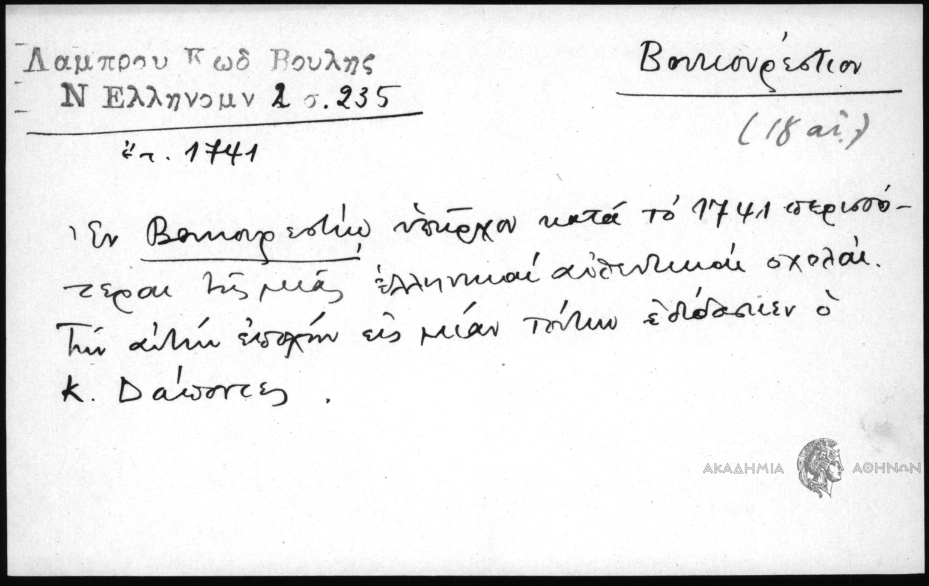 Λαμπρου Κωδ Βουλης
Ν Ελληνομν 2 σ. 235
ἔτ. 1741
Βουκουρέστιον
(18 αἰ.)
Ἐν Βουκουρεστίῳ ὑπῆρχον κατά τό 1741 περισσό-
τεραι τῆς μιᾶς ἑλληνικαί αὐθεντικαί σχολαί.
Τήν αὐτήν ἐποχήν εἰς μίαν τούτων ἐδίδασκεν ὁ
Κ. Δαπόντες.
ΑΚΑΔΗΜΙΑ ΑΘΗΝΩΝ